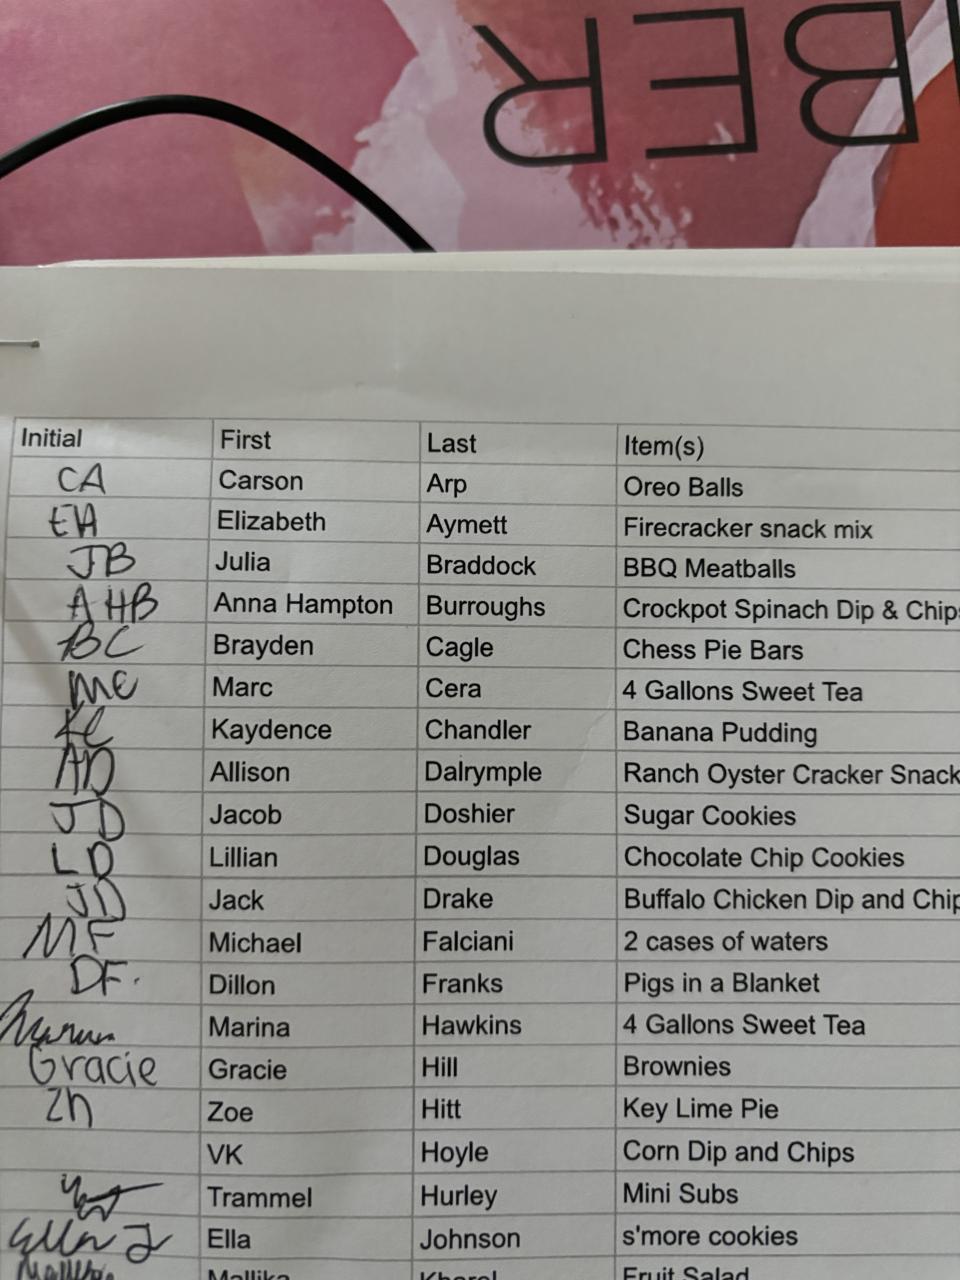 BER
Initial First Last Item(s)
CA Carson Arp Oreo Balls
EA Elizabeth Aymett Firecracker snack mix
JB Julia Braddock BBQ Meatballs
AHB Anna Hampton Burroughs Crockpot Spinach Dip & Chips
BC Brayden Cagle Chess Pie Bars
MC Marc Cera 4 Gallons Sweet Tea
KC Kaydence Chandler Banana Pudding
AD Allison Dalrymple Ranch Oyster Cracker Snack
JD Jacob Doshier Sugar Cookies
LD Lillian Douglas Chocolate Chip Cookies
JD Jack Drake Buffalo Chicken Dip and Chip
MF Michael Falciani 2 cases of waters
DF. Dillon Franks Pigs in a Blanket
Marina Hawkins 4 Gallons Sweet Tea
Gracie Gracie Hill Brownies
Zh Zoe Hitt Key Lime Pie
VK Hoyle Corn Dip and Chips
Trammel Hurley Mini Subs
Ella J Ella Johnson s'more cookies
Mallika Kharel Fruit Salad